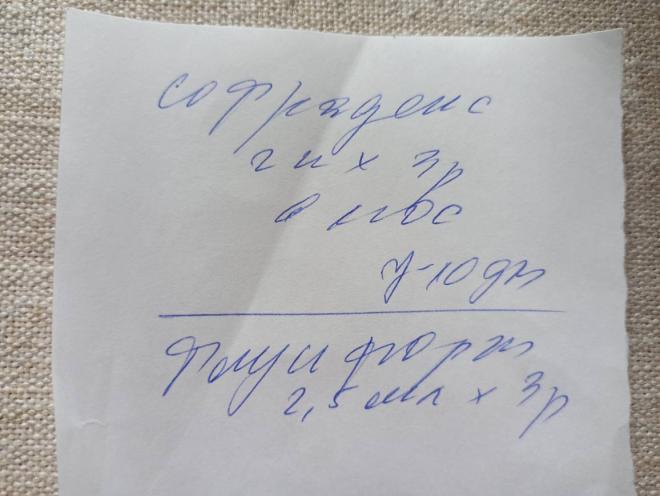 софрадекс
2 к х 3р
в нос
7-10 дн
Флуифорт
2,5 мл х 3р